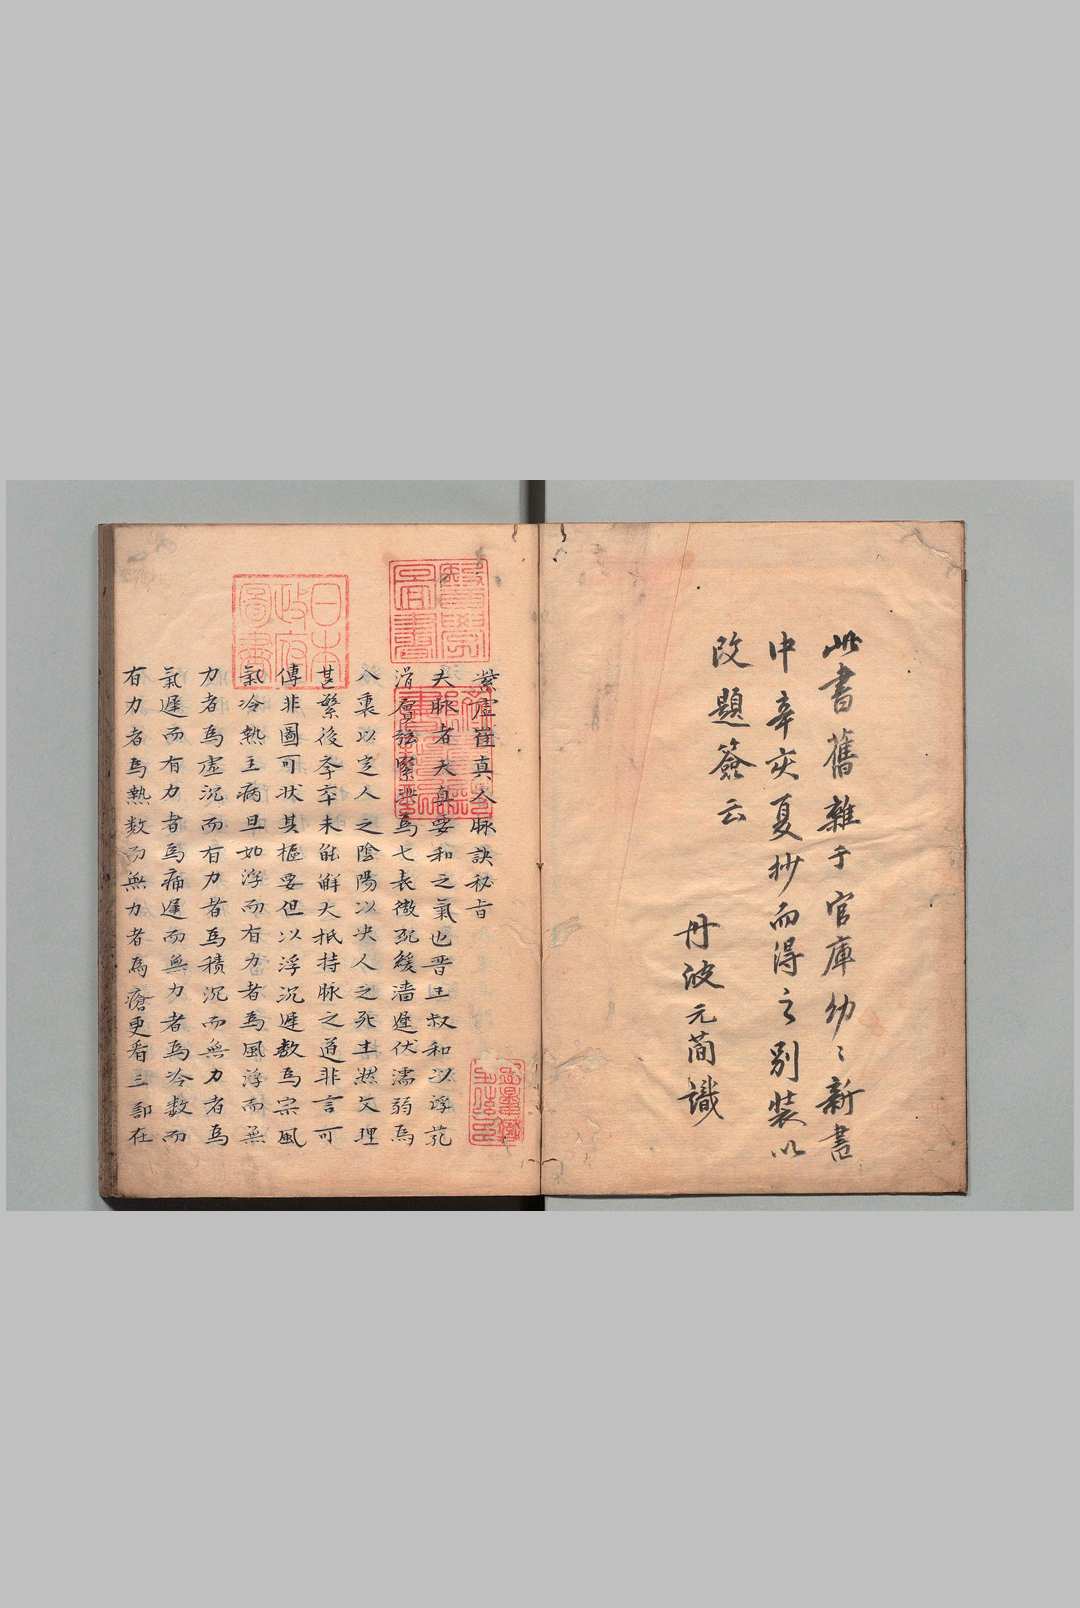 此書舊雜于官庫幼〻新書
中辛亥夏抄而得之別裝以
改題簽云
丹波元簡識
紫虛崔真人脉訣秘旨
夫脉者天真要和之氣也晋王叔和以浮芤
滑實弦緊洪為七表微沉緩濇遲伏濡弱為
八裏以定人之陰陽以决人之死生然文理
甚繁後李卒未能解大抵持脉之道非言可
傳非圖可状其樞要但以浮沉遲數為宗風
氣冷熱主病且如浮而有力者為風浮而無
力者為虛沉而有力者為積沉而無力者為
氣遲而有力者為痛遲而無力者為冷數而
有力者為熱數而無力者為瘡更看三部在
醫學圖書
日本政府圖書